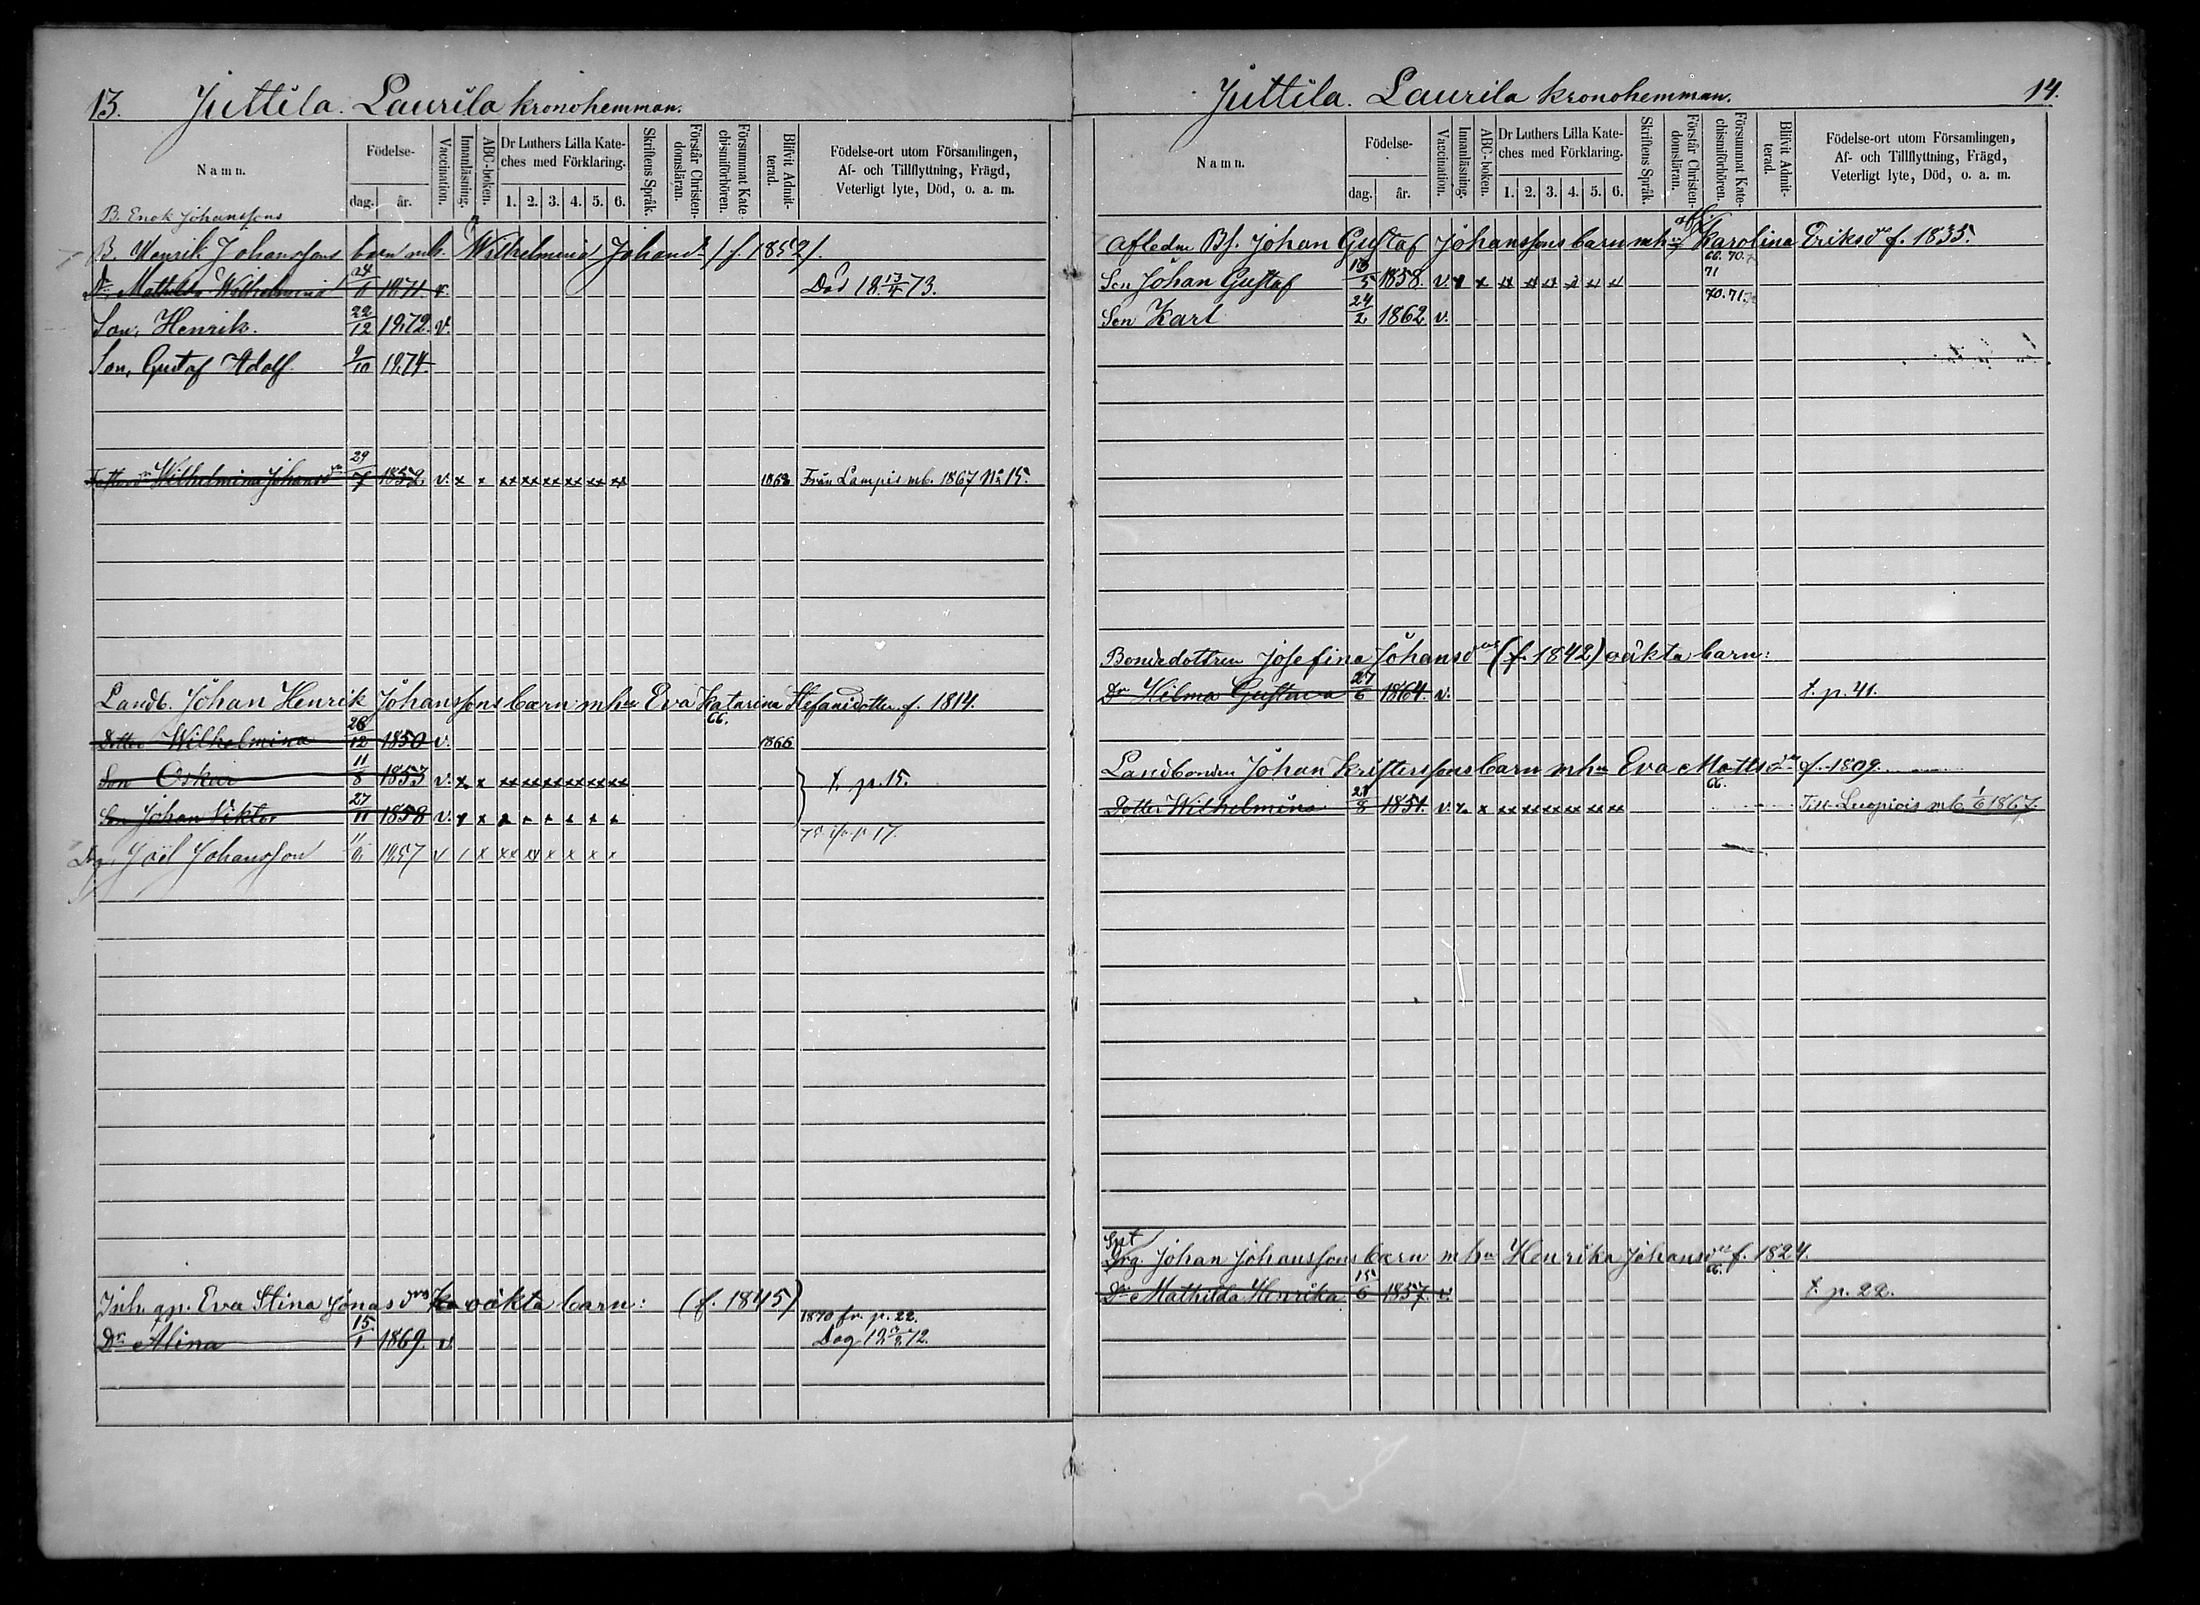 13. Juttila. Laurila kronohemman.
Namn. Födelse- dag. år. Vaccination. Innanläsning. ABC-boken. Dr Luthers Lilla Kateches med Förklaring. 1. 2. 3. 4. 5. 6. Skriftens Språk. Förstår Christendomsläran. Försummat Katechismiförhören. Blifvit Admitterad. Födelse-ort utom Församlingen, Af- och Tillflyttning, Frägd, Veterligt lyte, Död, o. a. m.
B. Enok Johanssons
B. Henrik Johanssons barn mh. Wilhelmina Johansdr (f. 1852).
Dr Mathilda Wilhelmina 1871. v. Död 18 13/4 73.
Son, Henrik. 22/12 1872 v.
Son, Gustaf Adolf. 9/10 1874.
Wilhelmina Johansdr 29/7 1852. v. x x xx xx xx xx xx xx Från Lampis mb. 1867 No 15.
Landb. Johan Henrik Johanssons barn mhu Eva Katarina Stefansdotter f. 1814.
66.
Dotter Wilhelmina 26/12 1850 v. 1866
Son Oskar 11/8 1853 v. x x xx xx xx xx xx xx } t. p. 15.
Son Johan Viktor 27/11 1858 v.
Joël Johansson 1857 v x xx xx x x x x
Inh. qp. Eva Stina Jonasdrs oäkta barn: (f. 1845)
1870 fr. p. 22.
Dr Alina 15/1 1869. v.
Juttila. Laurila kronohemman. 14.
Namn. Födelse- dag. år. Vaccination. Innanläsning. ABC-boken. Dr Luthers Lilla Kateches med Förklaring. 1. 2. 3. 4. 5. 6. Skriftens Språk. Förstår Christendomsläran. Försummat Katechismiförhören. Blifvit Admitterad. Födelse-ort utom Församlingen, Af- och Tillflyttning, Frägd, Veterligt lyte, Död, o. a. m.
Afledne Bs. Johan Gustaf Johanssons barn mhu Karolina Eriksdr f. 1835.
66. 70. 71
Son Johan Gustaf 13/5 1858. v. x x xx xx xx xx xx
70. 71.
Son Karl 24/2 1862 v.
Bondedottren Josefina Johansdrs (f. 1842) oäkta barn:
Dr Hilma Gustava 27/6 1864. v. t. p. 41.
Landbonden Johan Kristerssons barn mhu Eva Mattsdr f. 1809.
66.
Dotter Wilhelmina 28/8 1851. v. x x xx xx xx xx xx xx Till Luopiois mb 1/6 1867.
Gpt
Drg. Johan Johanssons barn mhu Henrika Johansdr f. 1824.
66.
Dr Mathilda Henrika 15/6 1857. v. t. p. 22.